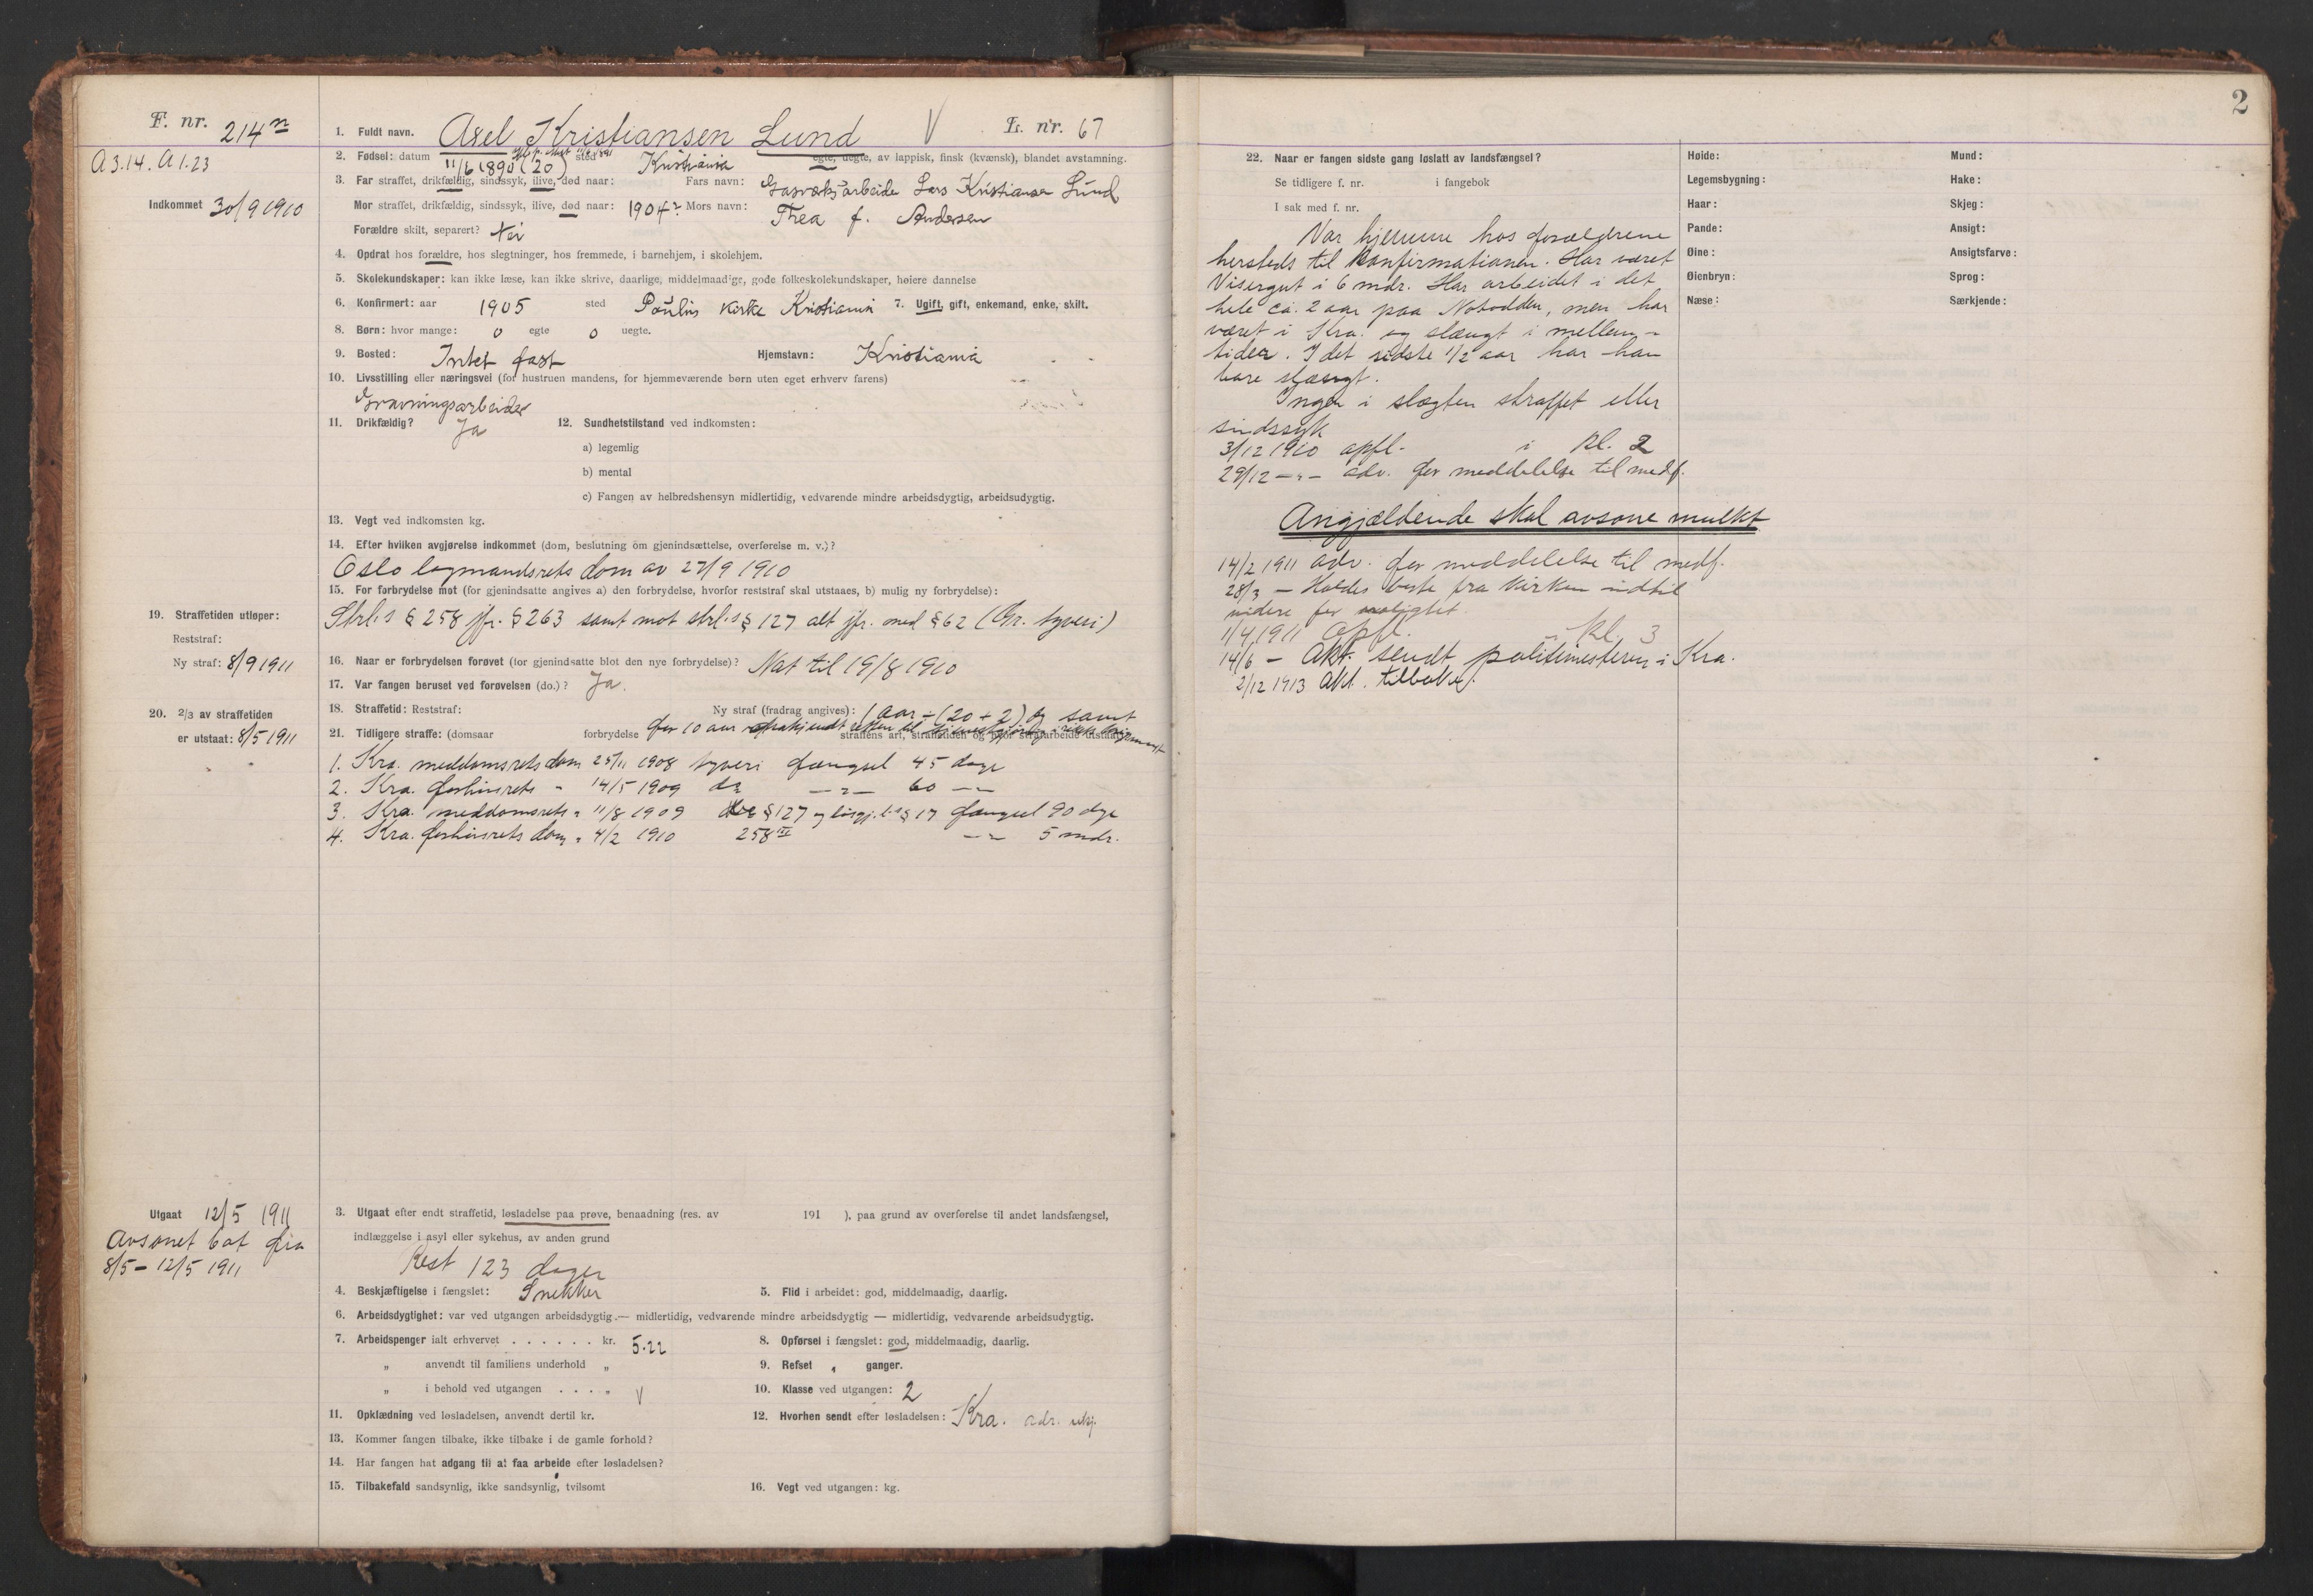 F. nr. 214 n
A 3.14. A 1.23
Indkommet 30/9 1910
1. Fuldt navn. Axel Kristiansen Lund V L. nr. 67
2. Fødsel: datum 11/6 1890 (20) sted Kristiania egte, uegte, av lappisk, finsk (kvænsk), blandet avstamning.
3. Far straffet, drikfældig, sindssyk, ilive, død naar: Fars navn: Gasverksarbeide Lars Kristiansen Lund
Mor straffet, drikfældig, sindssyk, ilive, død naar: 1904? Mors navn: Thea f. Andersen
Forældre skilt, separert? Nei
4. Opdrat hos forældre, hos slegtninger, hos fremmede, i barnehjem, i skolehjem.
5. Skolekundskaper: kan ikke læse, kan ikke skrive, daarlige, middelmaadige, gode folkeskolekundskaper, høiere dannelse
6. Konfirmert: aar 1905 sted Paulus kirke Kristiania 7. Ugift, gift, enkemand, enke, skilt.
8. Børn: hvor mange: 0 egte 0 uegte.
9. Bosted: Intet fast Hjemstavn: Kristiania
10. Livsstilling eller næringsvei (for hustruen mandens, for hjemmeværende børn uten eget erhverv farens)
Gravningsarbeider
11. Drikfældig? Ja 12. Sundhetstilstand ved indkomsten:
a) legemlig
b) mental
c) Fangen av helbredshensyn midlertidig, vedvarende mindre arbeidsdygtig, arbeidsudygtig.
13. Vegt ved indkomsten kg.
14. Efter hvilken avgjørelse indkommet (dom, beslutning om gjenindsættelse, overførelse m. v.)?
Oslo lagmandsrets dom av 27/9 1910
15. For forbrydelse mot (for gjenindsatte angives a) den forbrydelse, hvorfor reststraf skul utstaaes, b) mulig ny forbrydelse):
Strl.s § 258 jfr. § 263 samt mot strl.s § 127 alt jfr. med § 62 (Gr. tyveri)
19. Straffetiden utløper:
Reststraf:
Ny straf: 8/9 1911
16. Naar er forbrydelsen forøvet (for gjenindsatte blot den nye forbrydelse)? Nat til 19/8 1910
17. Var fangen beruset ved forøvelsen (do.)? Ja.
20. 2/3 av straffetiden
er utstaat: 8/5 1911
18. Straffetid: Reststraf: Ny straf (fradrag angives): 1 aar ÷ (20 + 2) dg samt
21. Tidligere straffe: (domsaar forbrydelse for 10 aar frakjendt retten til straffens art, straffetiden og hvor strafarbeide utstaat)
1. Kra. meddomsrets dom 25/11 1908 tyveri fængsel 45 dage
2. Kra. forhørsrets " 14/5 1909 do —"— 60 —"—
3. Kra. meddomsrets " 11/8 1909 § 127 og løsgj.l.s § 17 fængsel 90 dge
4. Kra. forhørsrets dom " 4/2 1910 258 —"— 5 mdr.
Utgaat 12/5 1911
Avsonet bot fra
8/5 – 12/5 1911
3. Utgaat efter endt straffetid, løsladelse paa prøve, benaadning (res. av 191 ), paa grund av overførelse til andet landsfængsel,
indlæggelse i asyl eller sykehus, av anden grund
Rest 123 dager
4. Beskjæftigelse i fængslet: Snekker 5. Flid i arbeidet: god, middelmaadig, daarlig.
6. Arbeidsdygtighet: var ved utgangen arbeidsdygtig — midlertidig, vedvarende mindre arbeidsdygtig — midlertidig, vedvarende arbeidsudygtig.
7. Arbeidspenger ialt erhvervet . . . . . . kr. 5.22 8. Opførsel i fængslet: god, middelmaadig, daarlig.
„ anvendt til familiens underhold „ 9. Refset „ ganger.
„ i behold ved utgangen . . . „ V 10. Klasse ved utgangen: 2
11. Opklædning ved løsladelsen, anvendt dertil kr. 12. Hvorhen sendt efter løsladelsen: Kra. adr. ukj.
13. Kommer fangen tilbake, ikke tilbake i de gamle forhold?
14. Har fangen hat adgang til at faa arbeide efter løsladelsen?
15. Tilbakefald sandsynlig, ikke sandsynlig, tvilsomt 16. Vegt ved utgangen: kg.
2
22. Naar er fangen sidste gang løslatt av landsfængsel?
Se tidligere f. nr. i fangebok
I sak med f. nr.
Var hjemme hos forældrene
hersteds til konfirmationen. Har været
Visergut i 6 mdr. Har arbeidet i det
hele ca. 2 aar paa Notodden, men har
været i Kra. og slængt i mellem-
tiden. I det sidste 1/2 aar har han
bare slængt.
Ingen i slægten straffet eller
sindssyk
3/12 1910 opfl. i kl. 2
29/12 —"— adv. for meddelelse til medf.
Angjældende skal avsone mulkt
14/2 1911 adv. for meddelelse til medf.
28/3 — Holdes borte fra kirken indtil
videre for
1/4 1911 Opfl. " kl. 3
14/6 — Akt. sendt politimesteren i Kra.
2/12 1913 Akt. tilbake.
Høide: Mund:
Legemsbygning: Hake:
Haar: Skjeg:
Pande: Ansigt:
Øine: Ansigtsfarve:
Øienbryn: Sprog:
Næse: Særkjende: